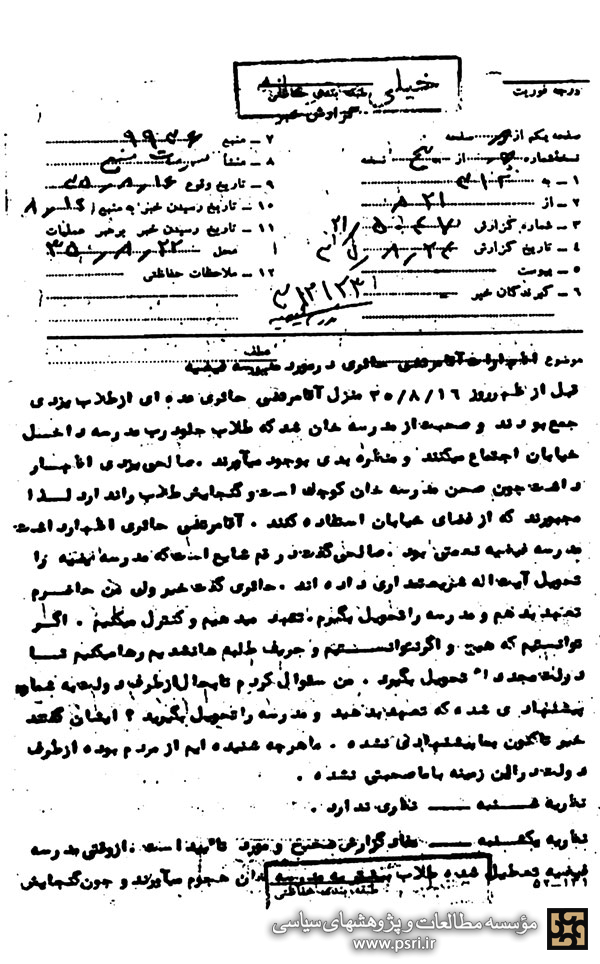 خیلی
طبقه بندی حفاظتی
گزارش خبر
درجه فوریت
صفحه یکم از صفحه
نسخه شماره از پنج نسخه
۱ ـ به ۳۱۲
۲ ـ از ۲۱ ه
۳ ـ شماره گزارش
۴ ـ تاریخ گزارش
۵ ـ پیوست
۶ ـ گیرندگان خبر
۷ ـ منبع ۹۹۳۶
۸ ـ منشأ
۹ ـ تاریخ وقوع ۳۵،۸،۱۶
۱۰ ـ تاریخ رسیدن خبر به منبع
۱۱ ـ تاریخ رسیدن خبر برهبر عملیات
محل ۳۵،۸،۲۲
۱۲ ـ ملاحظات حفاظتی
موضوع اظهارات آقا مرتضی حائری در مورد مدرسه فیضیه
قبل از ظهر روز ۳۵/۸/۱۶ منزل آقا مرتضی حائری عده ای از طلاب یزدی
جمع بودند و صحبت از مدرسه خان شد که طلاب جلو درب مدرسه داخل
خیابان اجتماع میکنند و منظره بدی بوجود میآورند . صالحی یزدی اظهار
داشت چون صحن مدرسه خان کوچک است و گنجایش طلاب را ندارد لذا
مجبورند که از فضای خیابان استفاده کنند . آقا مرتضی حائری اظهار داشت
مدرسه فیضیه نعمتی بود . صالحی گفت در قم شایع است که مدرسه فیضیه را
تحویل آیت اله شریعتمداری داده اند . حائری گفت خیر ولی من حاضرم
تعهد بدهم و مدرسه را تحویل بگیرم . تعهد میدهیم و کنترل میکنیم . اگر
توانستیم که هیچ و اگر نتوانستیم و حریف طلبه ها نشدیم رها میکنیم تا
دولت مجددا تحویل بگیرد . من سئوال کردم تابحال از طرف دولت به شما
پیشنهادی شده که تعهد بدهید و مدرسه را تحویل بگیرید ؟ ایشان گفتند
خیر تاکنون بما پیشنهادی نشده . ما هرچه شنیده ایم از مردم بوده از طرف
دولت در این زمینه با ما صحبتی نشده .
نظریه شنبه ـــ نظری ندارد .
نظریه یکشنبه ـــ مفاد گزارش صحیح و مورد تائید است . از وقتی مدرسه
فیضیه تعطیل شده طلاب بیشتر به مدرسه خان هجوم میآورند و چون گنجایش
طبقه بندی حفاظتی
۵۲-۱۲۱
مؤسسه مطالعات و پژوهشهای سیاسی
www.psri.ir